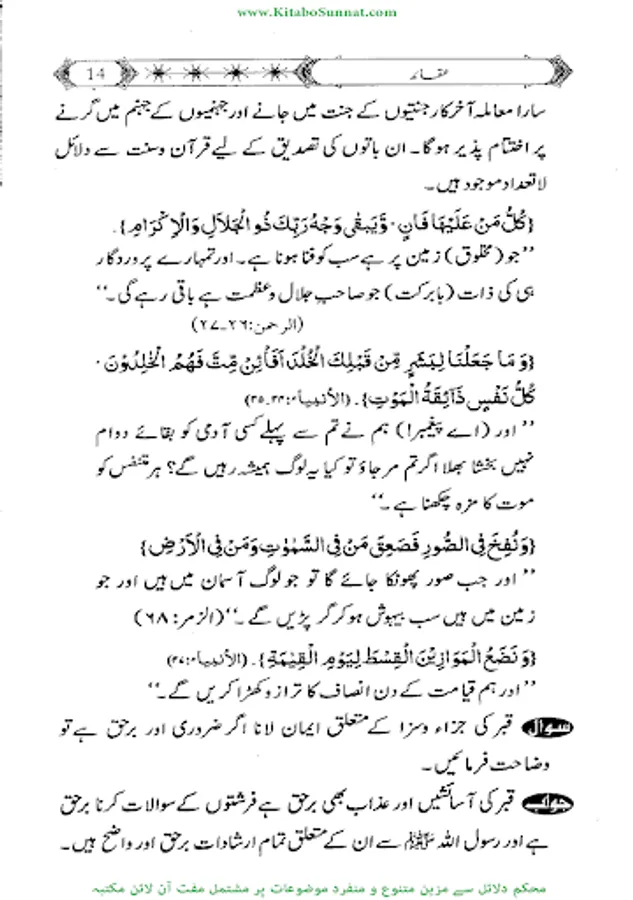 www.KitaboSunnat.com
14
عقائد
سارا معاملہ آخرکار جنتیوں کے جنت میں جانے اور جہنمیوں کے جہنم میں گرنے
پر اختتام پذیر ہوگا۔ ان باتوں کی تصدیق کے لیے قرآن وسنت سے دلائل
لا تعداد موجود ہیں۔
{كُلُّ مَنْ عَلَيْهَا فَانٍ ۰ وَّيَبْقٰى وَجْهُ رَبِّكَ ذُو الْجَلَالِ وَالْاِكْرَامِ}.
’’جو (مخلوق) زمین پر ہے سب کو فنا ہونا ہے۔ اور تمہارے پروردگار
ہی کی ذات (بابرکت) جو صاحب جلال و عظمت ہے باقی رہے گی۔‘‘
(الرحمن:۲۶۔۲۷)
{وَ مَا جَعَلْنَا لِبَشَرٍ مِّنْ قَبْلِكَ الْخُلْدَ اَفَاْئِنْ مِّتَّ فَهُمُ الْخٰلِدُوْنَ ۰
كُلُّ نَفْسٍ ذَآئِقَةُ الْمَوْتِ}. (الأنبیاء:۳۴۔۳۵)
’’اور (اے پیغمبر!) ہم نے تم سے پہلے کسی آدمی کو بقائے دوام
نہیں بخشا بھلا اگر تم مر جاؤ تو کیا یہ لوگ ہمیشہ رہیں گے؟ ہر متنفس کو
موت کا مزہ چکھنا ہے۔‘‘
{وَنُفِخَ فِي الصُّوْرِ فَصَعِقَ مَنْ فِي السَّمٰوٰتِ وَمَنْ فِي الْاَرْضِ}
’’اور جب صور پھونکا جائے گا تو جو لوگ آسمان میں ہیں اور جو
زمین میں ہیں سب بیہوش ہو کر گر پڑیں گے۔‘‘ (الزمر:۶۸)
{وَ نَضَعُ الْمَوَازِيْنَ الْقِسْطَ لِيَوْمِ الْقِيٰمَةِ}. (الأنبیاء:۴۷)
’’اور ہم قیامت کے دن انصاف کا ترازو کھڑا کریں گے۔‘‘
سوال قبر کی جزاء وسزا کے متعلق ایمان لانا اگر ضروری اور برحق ہے تو
وضاحت فرمائیں۔
جواب قبر کی آسائشیں اور عذاب بھی برحق ہے فرشتوں کے سوالات کرنا برحق
ہے اور رسول اللہ ﷺ سے ان کے متعلق تمام ارشادات برحق اور واضح ہیں۔
محکم دلائل سے مزین متنوع و منفرد موضوعات پر مشتمل مفت آن لائن مکتبہ